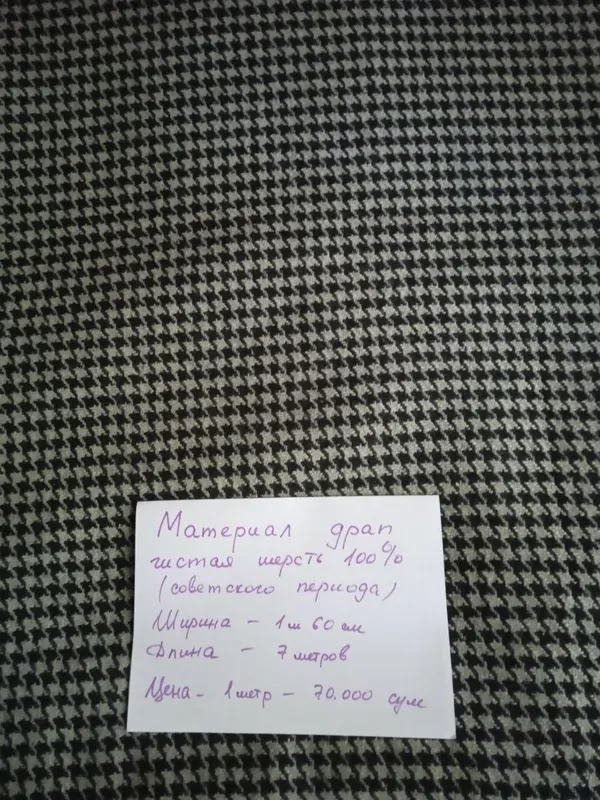 Материал драп
чистая шерсть 100%
(советского периода)
Ширина - 1 м 60 см
Длина - 7 метров
Цена - 1 метр - 70.000 сум